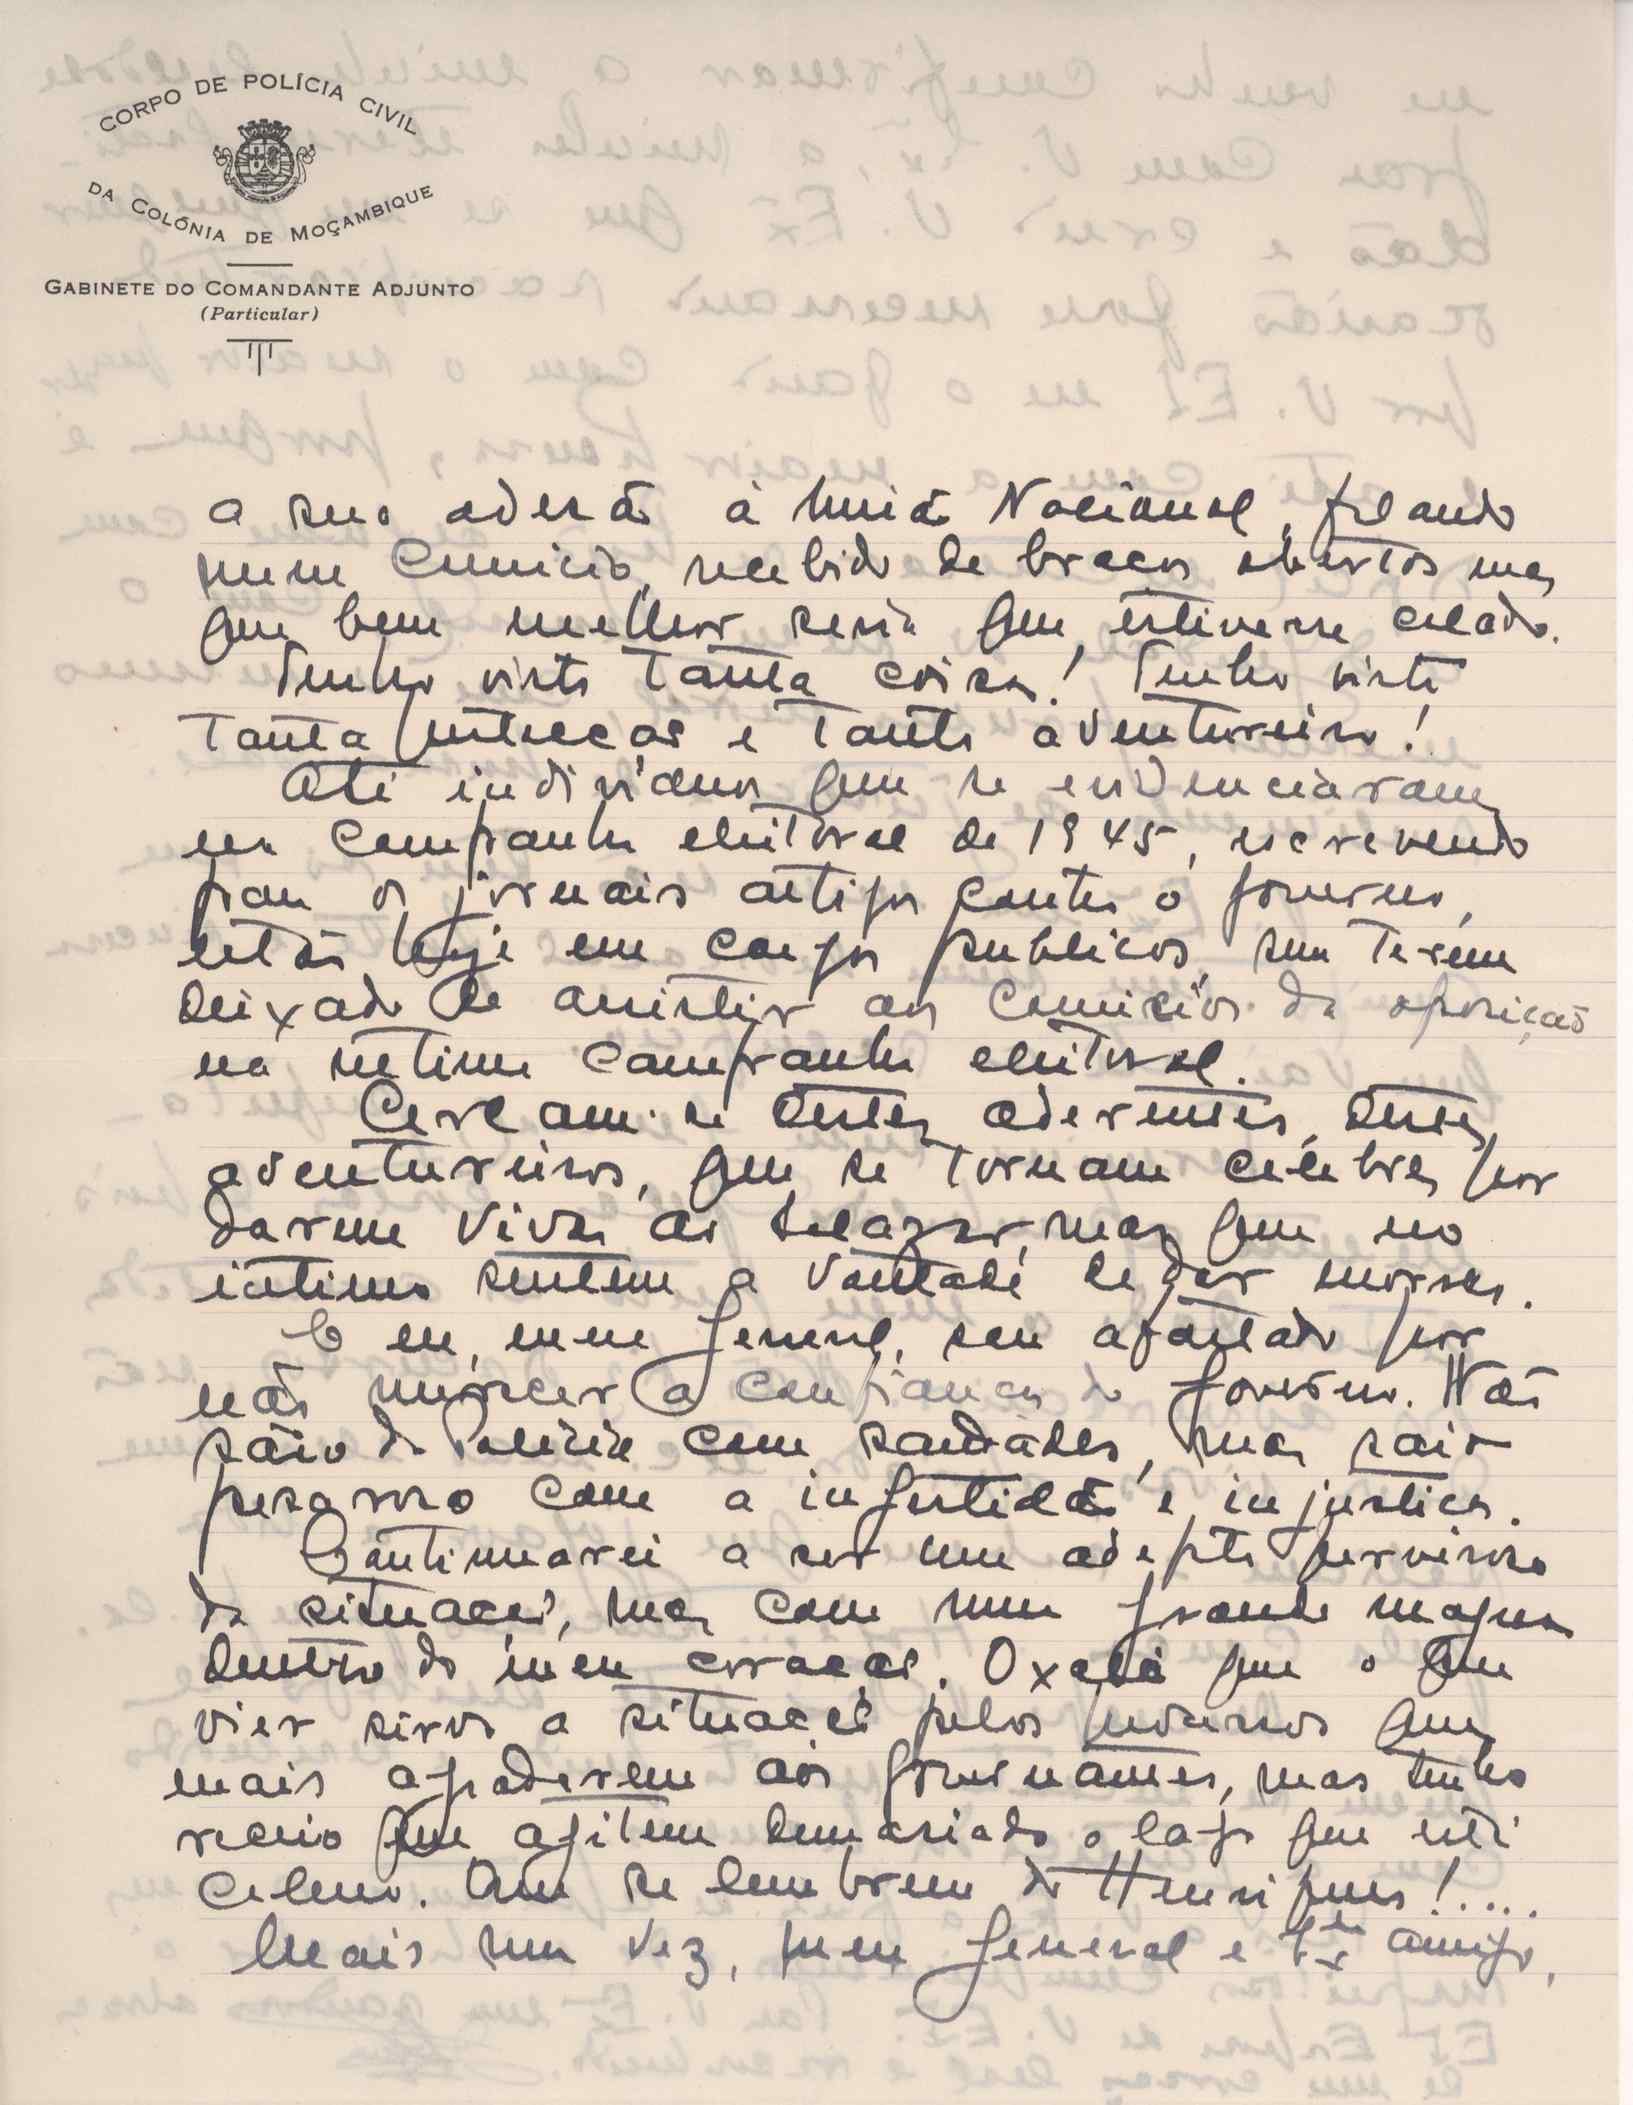 CORPO DE POLÍCIA CIVIL
DA COLÓNIA DE MOÇAMBIQUE
GABINETE DO COMANDANTE ADJUNTO
(Particular)
a sua adesão à União Nacional, falando
num comicio, recebido de braços abertos mas
que bem melhor seria que estivesse calado.
Tenho visto tanta coisa! Tenho visto
tanta intrecção e tanto aventureiro!
Até individuos que se evidenciaram
na campanha eleitoral de 1945, escrevendo
para os jornais artigos contra o governo,
estão hoje em cargos publicos, sem terem
deixado de assistir aos comicios da oposição
na ultima campanha eleitoral.
Cercam-se destes aderentes, destes
aventureiros, que se tornam celebres por
darem vivas ao Salazar, mas que no
intimo sentem a vontade de dar morras.
E eu, meu General, sou afastado por
não merecer a confiança do Governo. Não
saio da Policia com saudades, mas saio
pesaroso com a ingratidão e injustiça.
Continuarei a ser um adepto fervoroso
da situação, mas com uma grande magua
dentro do meu coração. Oxalá que o que
vier sirva a situação pelos processos que
mais agradarem aos governantes, mas tenho
receio que agitem demasiado o lago que está
calmo. Que se lembrem do Henriques!....
Mais uma vez, meu General e Exmo amigo,